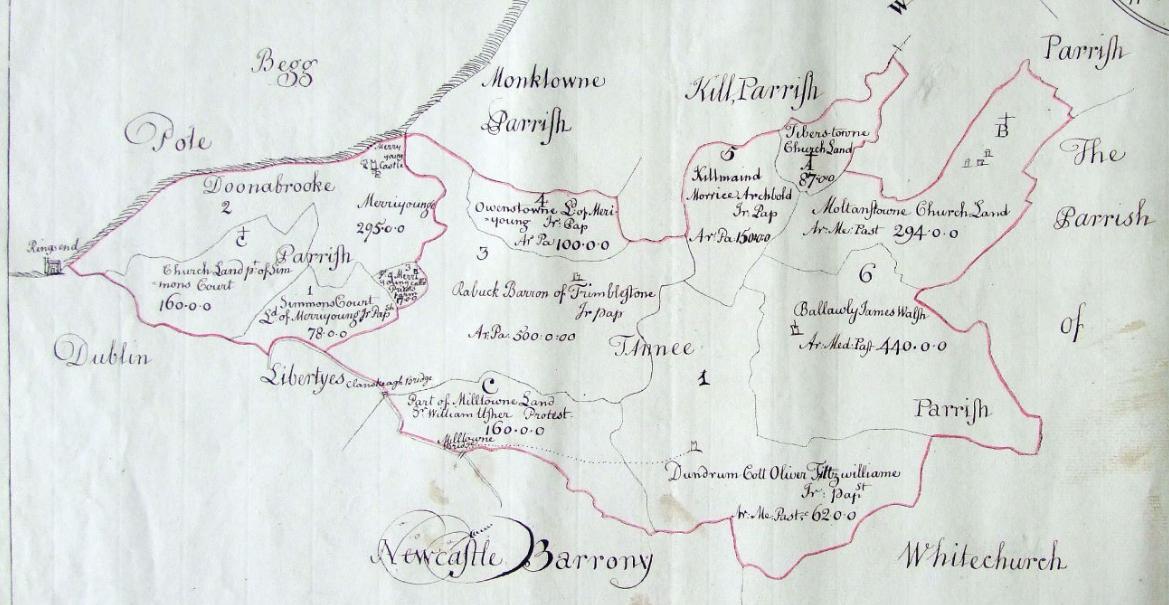 W
Begg
Pole
Monktowne
Parrish
Kill, Parrish
Parrish
The
Parrish
of
Ringsend
Doonabrooke
2
Merryyoung
Castle
Merriyounge
295·0·0
Parrish
C
Church Land pt. of Sim
mons Court
160·0·0
1
Simmons Court
Ld of Merryyoung Ir Papst
78·0·0
3
Dublin
Libertyes
Clanskeagh Bridge
4
Owenstowne Ld of Meri
young Ir: Pap
Ar Pa 100·0·0
3
Rabuck Barron of Trimblestone
Ir pap
Ar: Pa: 500·0:00
Tannee
5
Killmaind
Morrice Archbold
Ir Pap
Ar: Pa
Tiberstowne
Church Land
A
87·0·0
B
Moltanstowne Church Land
Ar: Me: Past 294·0·0
6
Ballawly James Walsh
Ar: Med: Past 440·0·0
1
Parrish
C
Part of Milltowne Land
Sr William Usher Protest
160·0·0
Milltowne
Bridge
Dundrum Coll Oliver Fittzwilliame
Ir: papst
Ar: Me: Past: 620·0
Newcastle Barrony
Whitechurch